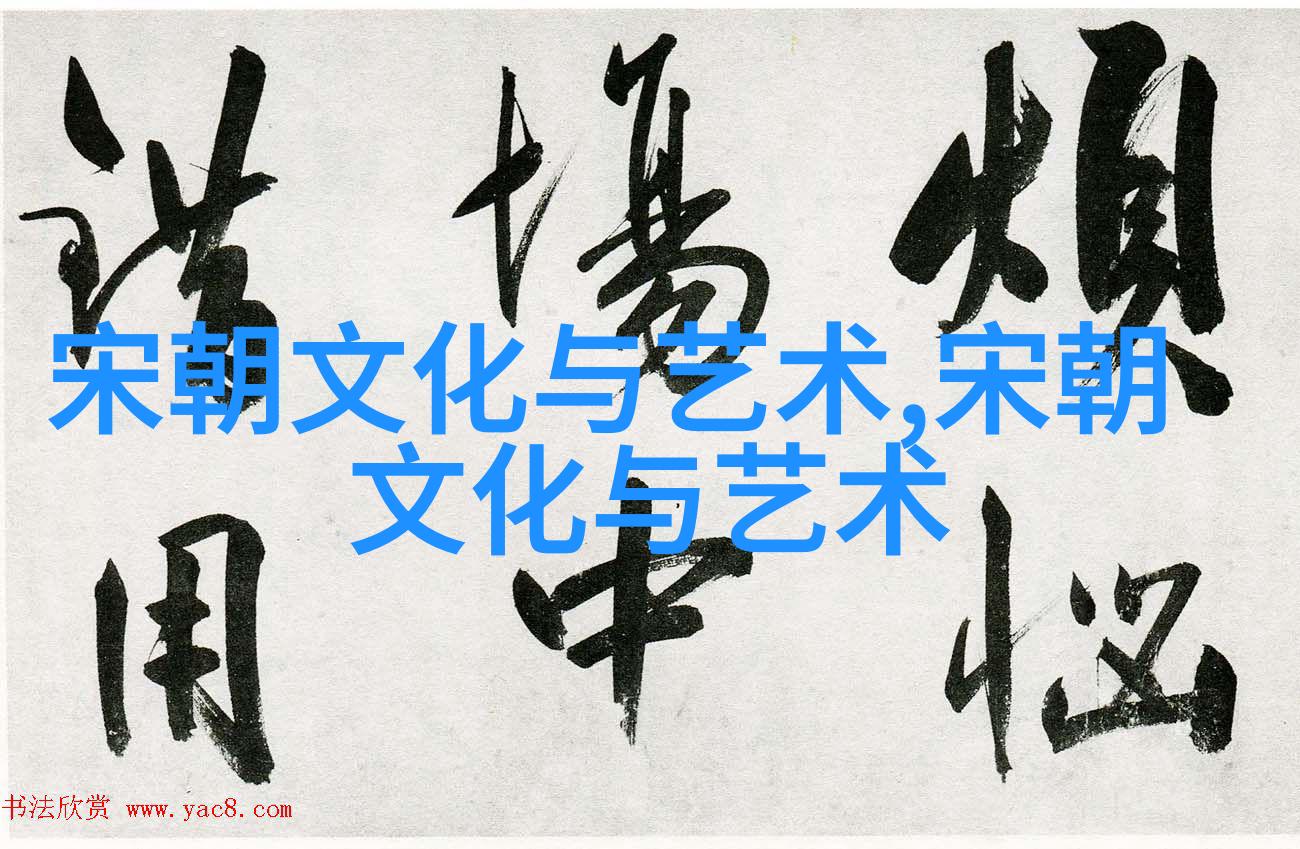 煩惱
場中
錯用
宋朝文化与艺术,宋朝
文化与艺术
书法欣赏 www.yac8.com